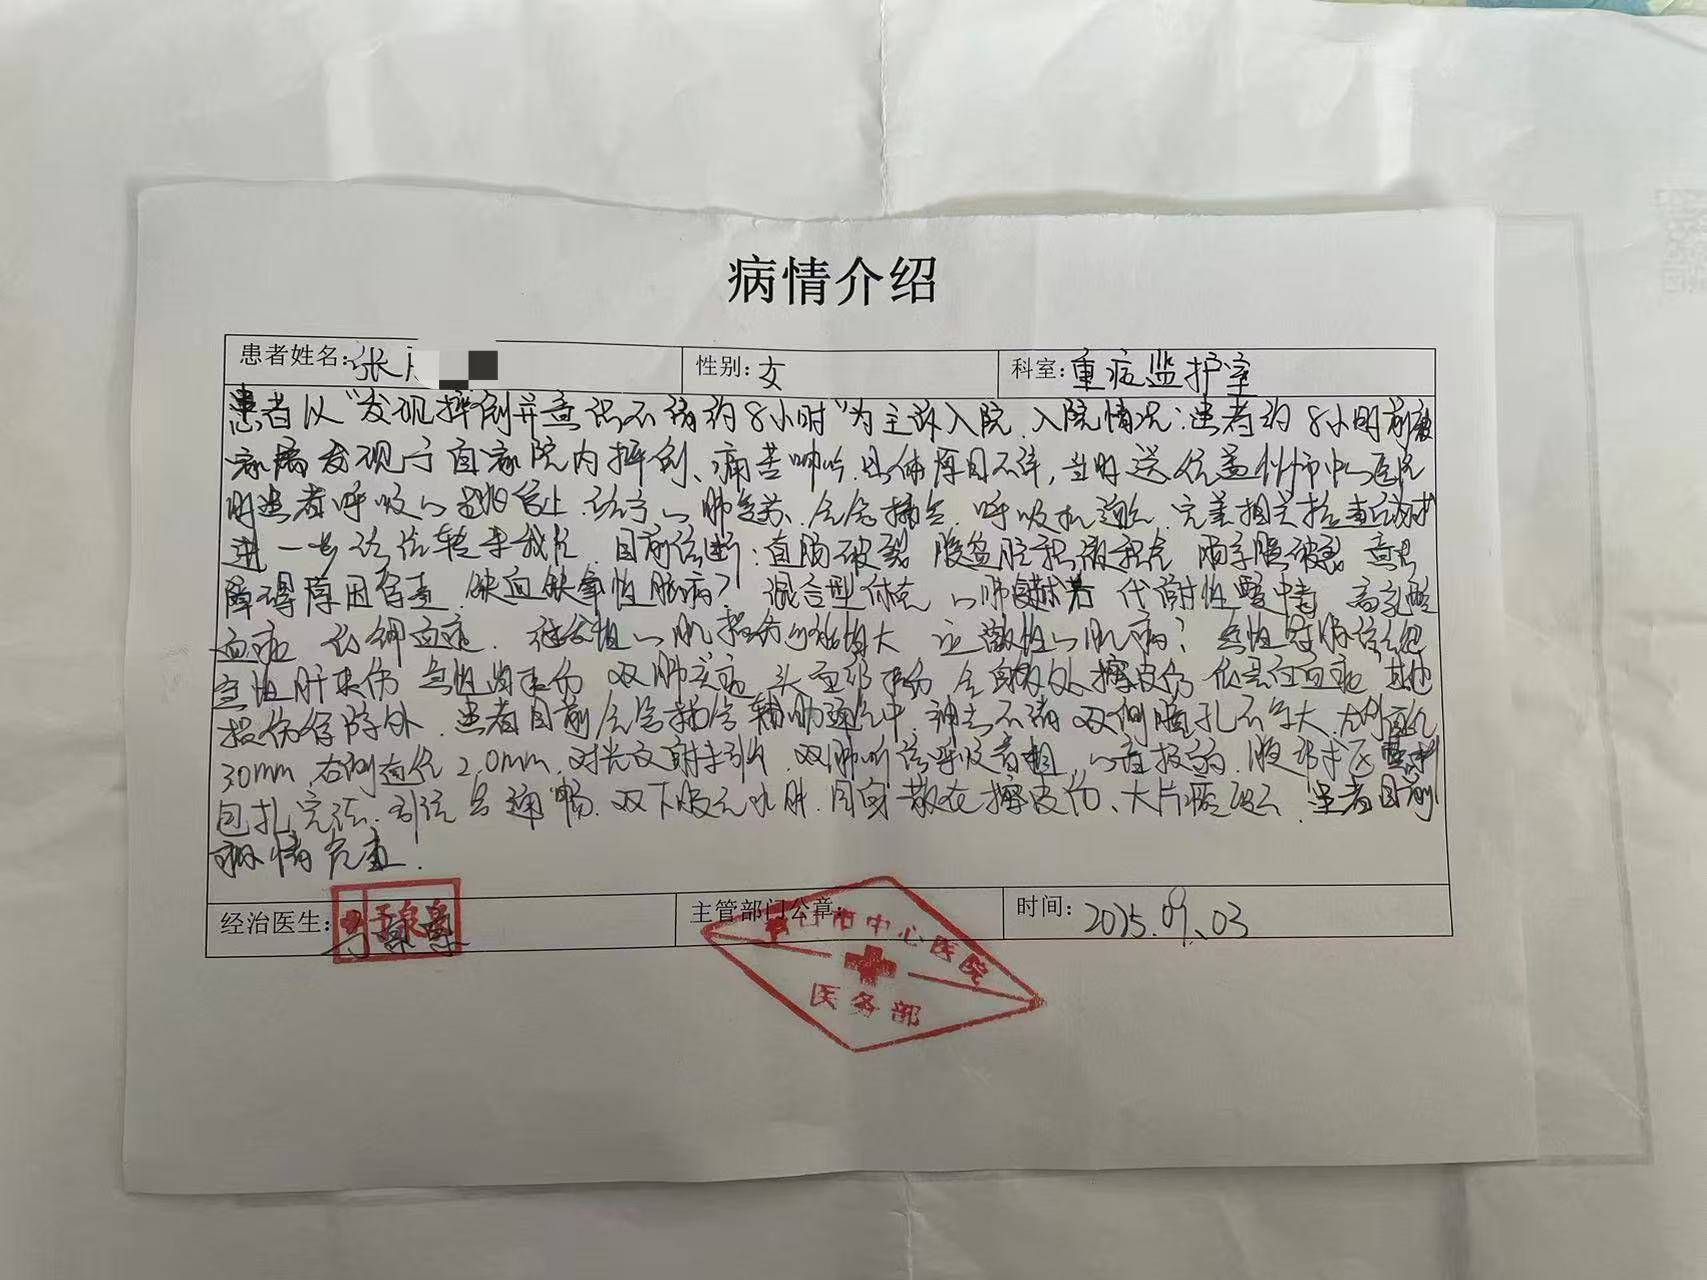 病情介绍
患者姓名: 张 性别: 女 科室: 重症监护室
患者以"发现摔倒并意识不清约8小时"为主诉入院.入院情况:患者约8小时前被
家属发现于自家院内摔倒、痛苦呻吟.具体原因不详,当时送任孟州市中心医院
时患者呼吸心跳停止.给予心肺复苏、气管插管.呼吸机通气.完善相关检查
进一步诊治转来我院.目前诊断:直肠破裂 腹盆腔积液积气 意识
障碍原因待查.缺血缺氧性脑病? 混合型休克 心肺复苏术后 代谢性酸中毒 高乳酸
血症 低钾血症. 继发性心肌损伤 应激性心肌病?
急性肝损伤 急性肾损伤 双肺炎症 头面部外伤 全身多处擦皮伤 低蛋白血症 其他
损伤待除外.患者目前气管插管辅助通气中.神志不清 双侧瞳孔不等大.左侧直径
30mm.右侧直径2.0mm.对光反射未引出.双肺听诊呼吸音粗.心音低钝.腹部术区
包扎完好.引流管通畅.双下肢无水肿.周身散在擦皮伤、大片瘀斑.患者目前
病情危重.
经治医生: 主管部门公章: 时间: 2025.09.03
市中心医院
医务部